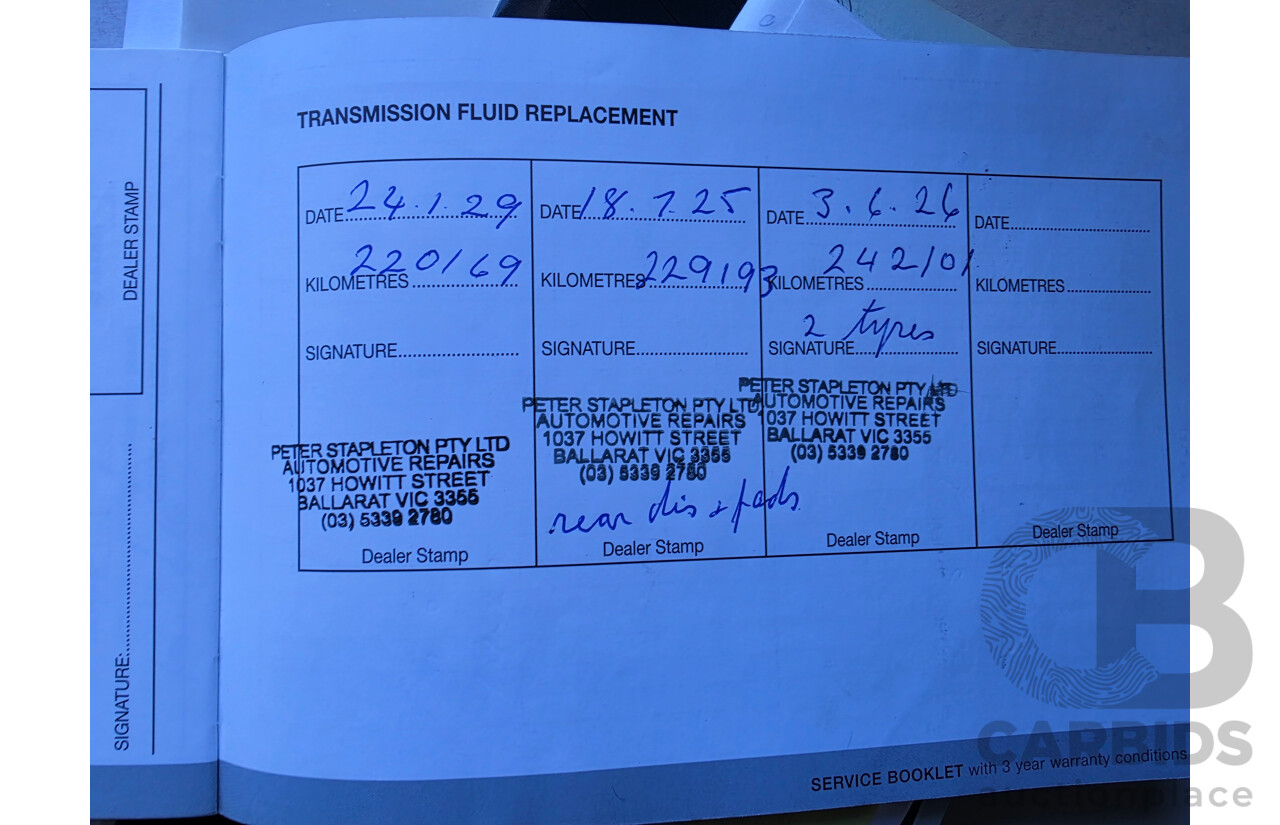 TRANSMISSION FLUID REPLACEMENT
DATE 24.1.29
KILOMETRES 220169
SIGNATURE
PETER STAPLETON PTY LTD
AUTOMOTIVE REPAIRS
1037 HOWITT STREET
BALLARAT VIC 3355
(03) 5339 2780
Dealer Stamp
DATE 18.7.25
KILOMETRES 229193
SIGNATURE
PETER STAPLETON PTY LTD
AUTOMOTIVE REPAIRS
1037 HOWITT STREET
BALLARAT VIC 3355
(03) 5339 2780
rear dis & pads
Dealer Stamp
DATE 3.6.26
KILOMETRES 242101
2 tyres
SIGNATURE
PETER STAPLETON PTY LTD
AUTOMOTIVE REPAIRS
1037 HOWITT STREET
BALLARAT VIC 3355
(03) 5339 2780
Dealer Stamp
DATE
KILOMETRES
SIGNATURE
Dealer Stamp
DEALER STAMP
SIGNATURE:
SERVICE BOOKLET with 3 year warranty conditions
CB
CARBIDS
auctionplace